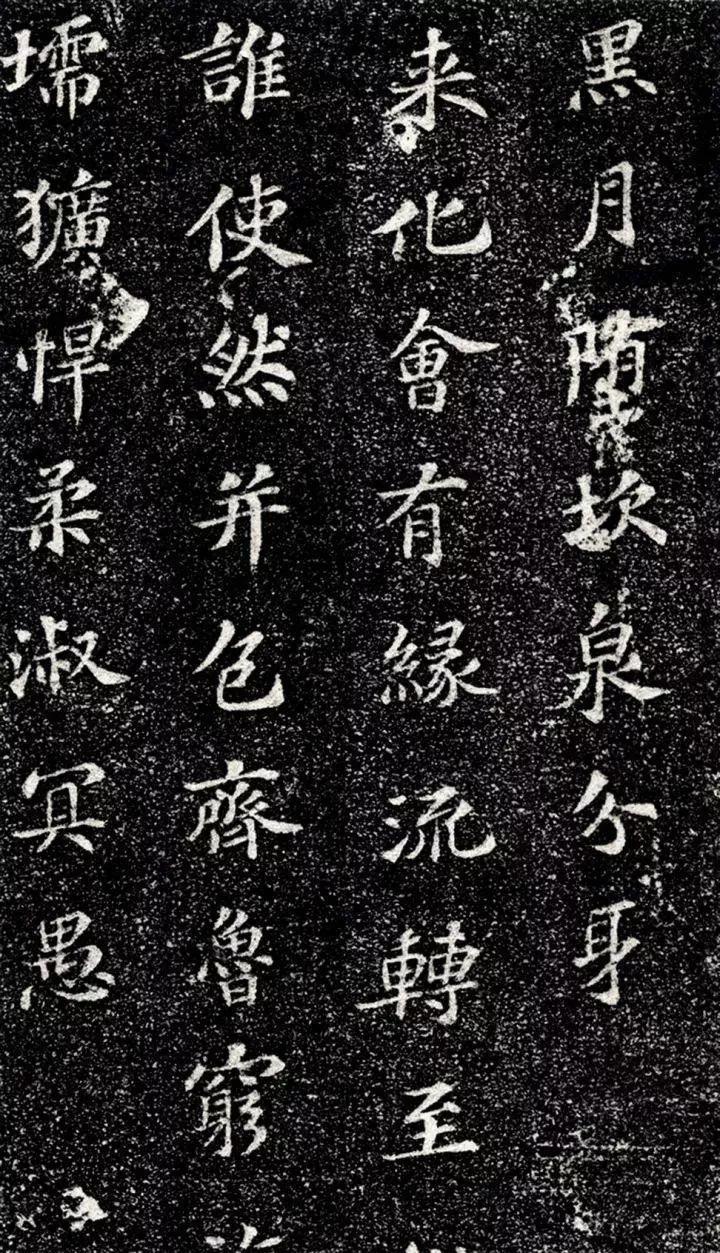 黑月隋坎泉分身
来化會有緣流轉至
誰使然并包齊魯窮
壖獷悍柔淑冥愚